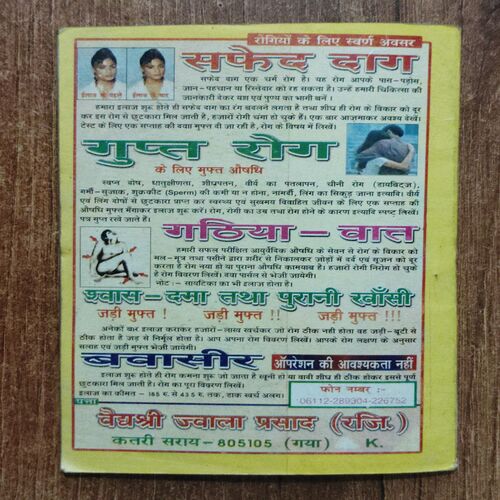 रोगियों के लिए स्वर्ण अवसर
सफेद दाग
सफेद दाग एक धर्म रोग है। यह रोग आपके पास-पड़ोस,
जान-पहचान या रिस्तेदार को रह सकता है। उन्हें हमारी चिकित्सा की
जानकारी देकर यश एवं पुण्य का भागी बनें।
इलाज के पहले
इलाज के बाद
हमारा इलाज शुरू होते ही सफेद दाग का रंग बदलने लगता है तथा शीघ्र ही रोग के विकार को दूर
कर इस रोग से छुटकारा मिल जाता है, हजारों रोगी चंगा हो चुके हैं। एक बार आजमाकर अवश्य देखें।
टेस्ट के लिए एक सप्ताह की दवा मुफ्त दी जा रही है, रोग के विषय में लिखें।
गुप्त रोग
के लिए मुफ्त औषधि
स्वप्न दोष, धातुक्षीणता, शीघ्रपतन, वीर्य का पतलापन, चीनी रोग (डायबिट्ज),
गर्मी-सुजाक, शुक्रकीट (Sperm) की कमी या न होना, नामर्दी, लिंग का सिकुड़ जाना इत्यादि। वीर्य
एवं लिंग दोषों से छुटकारा प्राप्त कर स्वस्थ्य एवं सुखमय विवाहित जीवन के लिए एक सप्ताह की
औषधि मुफ्त मँगाकर इलाज शुरू करें। रोग, रोगी का उम्र तथा रोग होने के कारण इत्यादि स्पष्ट लिखें।
पत्र गुप्त रखे जाते हैं।
गठिया-वात
हमारी सफल परीक्षित आयुर्वेदिक औषधि के सेवन से रोग के विकार को
मल-मूत्र तथा पसीने द्वारा शरीर से निकालकर जोड़ों में दर्द एवं सूजन को दूर
करता है रोग नया हो या पुराना औषधि कामयाब है। हजारों रोगी निरोग हो चुके
हैं रोग विवरण लिखें। दवा पार्सल से भेजी जायेगी।
नोट :- सायटिका का भी इलाज होता है।
श्वास-दमा तथा पुरानी खाँसी
जड़ी मुफ्त ! जड़ी मुफ्त !! जड़ी मुफ्त !!!
अनेकों बार इलाज कराकर हजारों-लाख खर्चकर जो रोग ठीक नहीं होता वह जड़ी-बूटी से
ठीक होता है जड़ से निर्मूल होता है। आप अपना रोग विवरण लिखें। आपके रोग लक्षण के अनुसार
सलाह एवं जड़ी मुफ्त भेजी जायेगी।
बवासीर ऑपरेशन की आवश्यकता नहीं
इलाज शुरू होते ही रोग कमना शुरू हो जाता है खूनी हो या वादी शीघ्र ही ठीक होकर इससे पूर्ण
छुटकारा मिल जाता है। रोग का पूरा विवरण लिखें।
इलाज का कीमत- 185 रु. से 435 रु. तक, डाक खर्च अलग।
फोन नम्बर :-
06112-289304-226752
पत्ता
वैद्यश्री ज्वाला प्रसाद (रजि.)
कतरी सराय-805105 (गया) K.